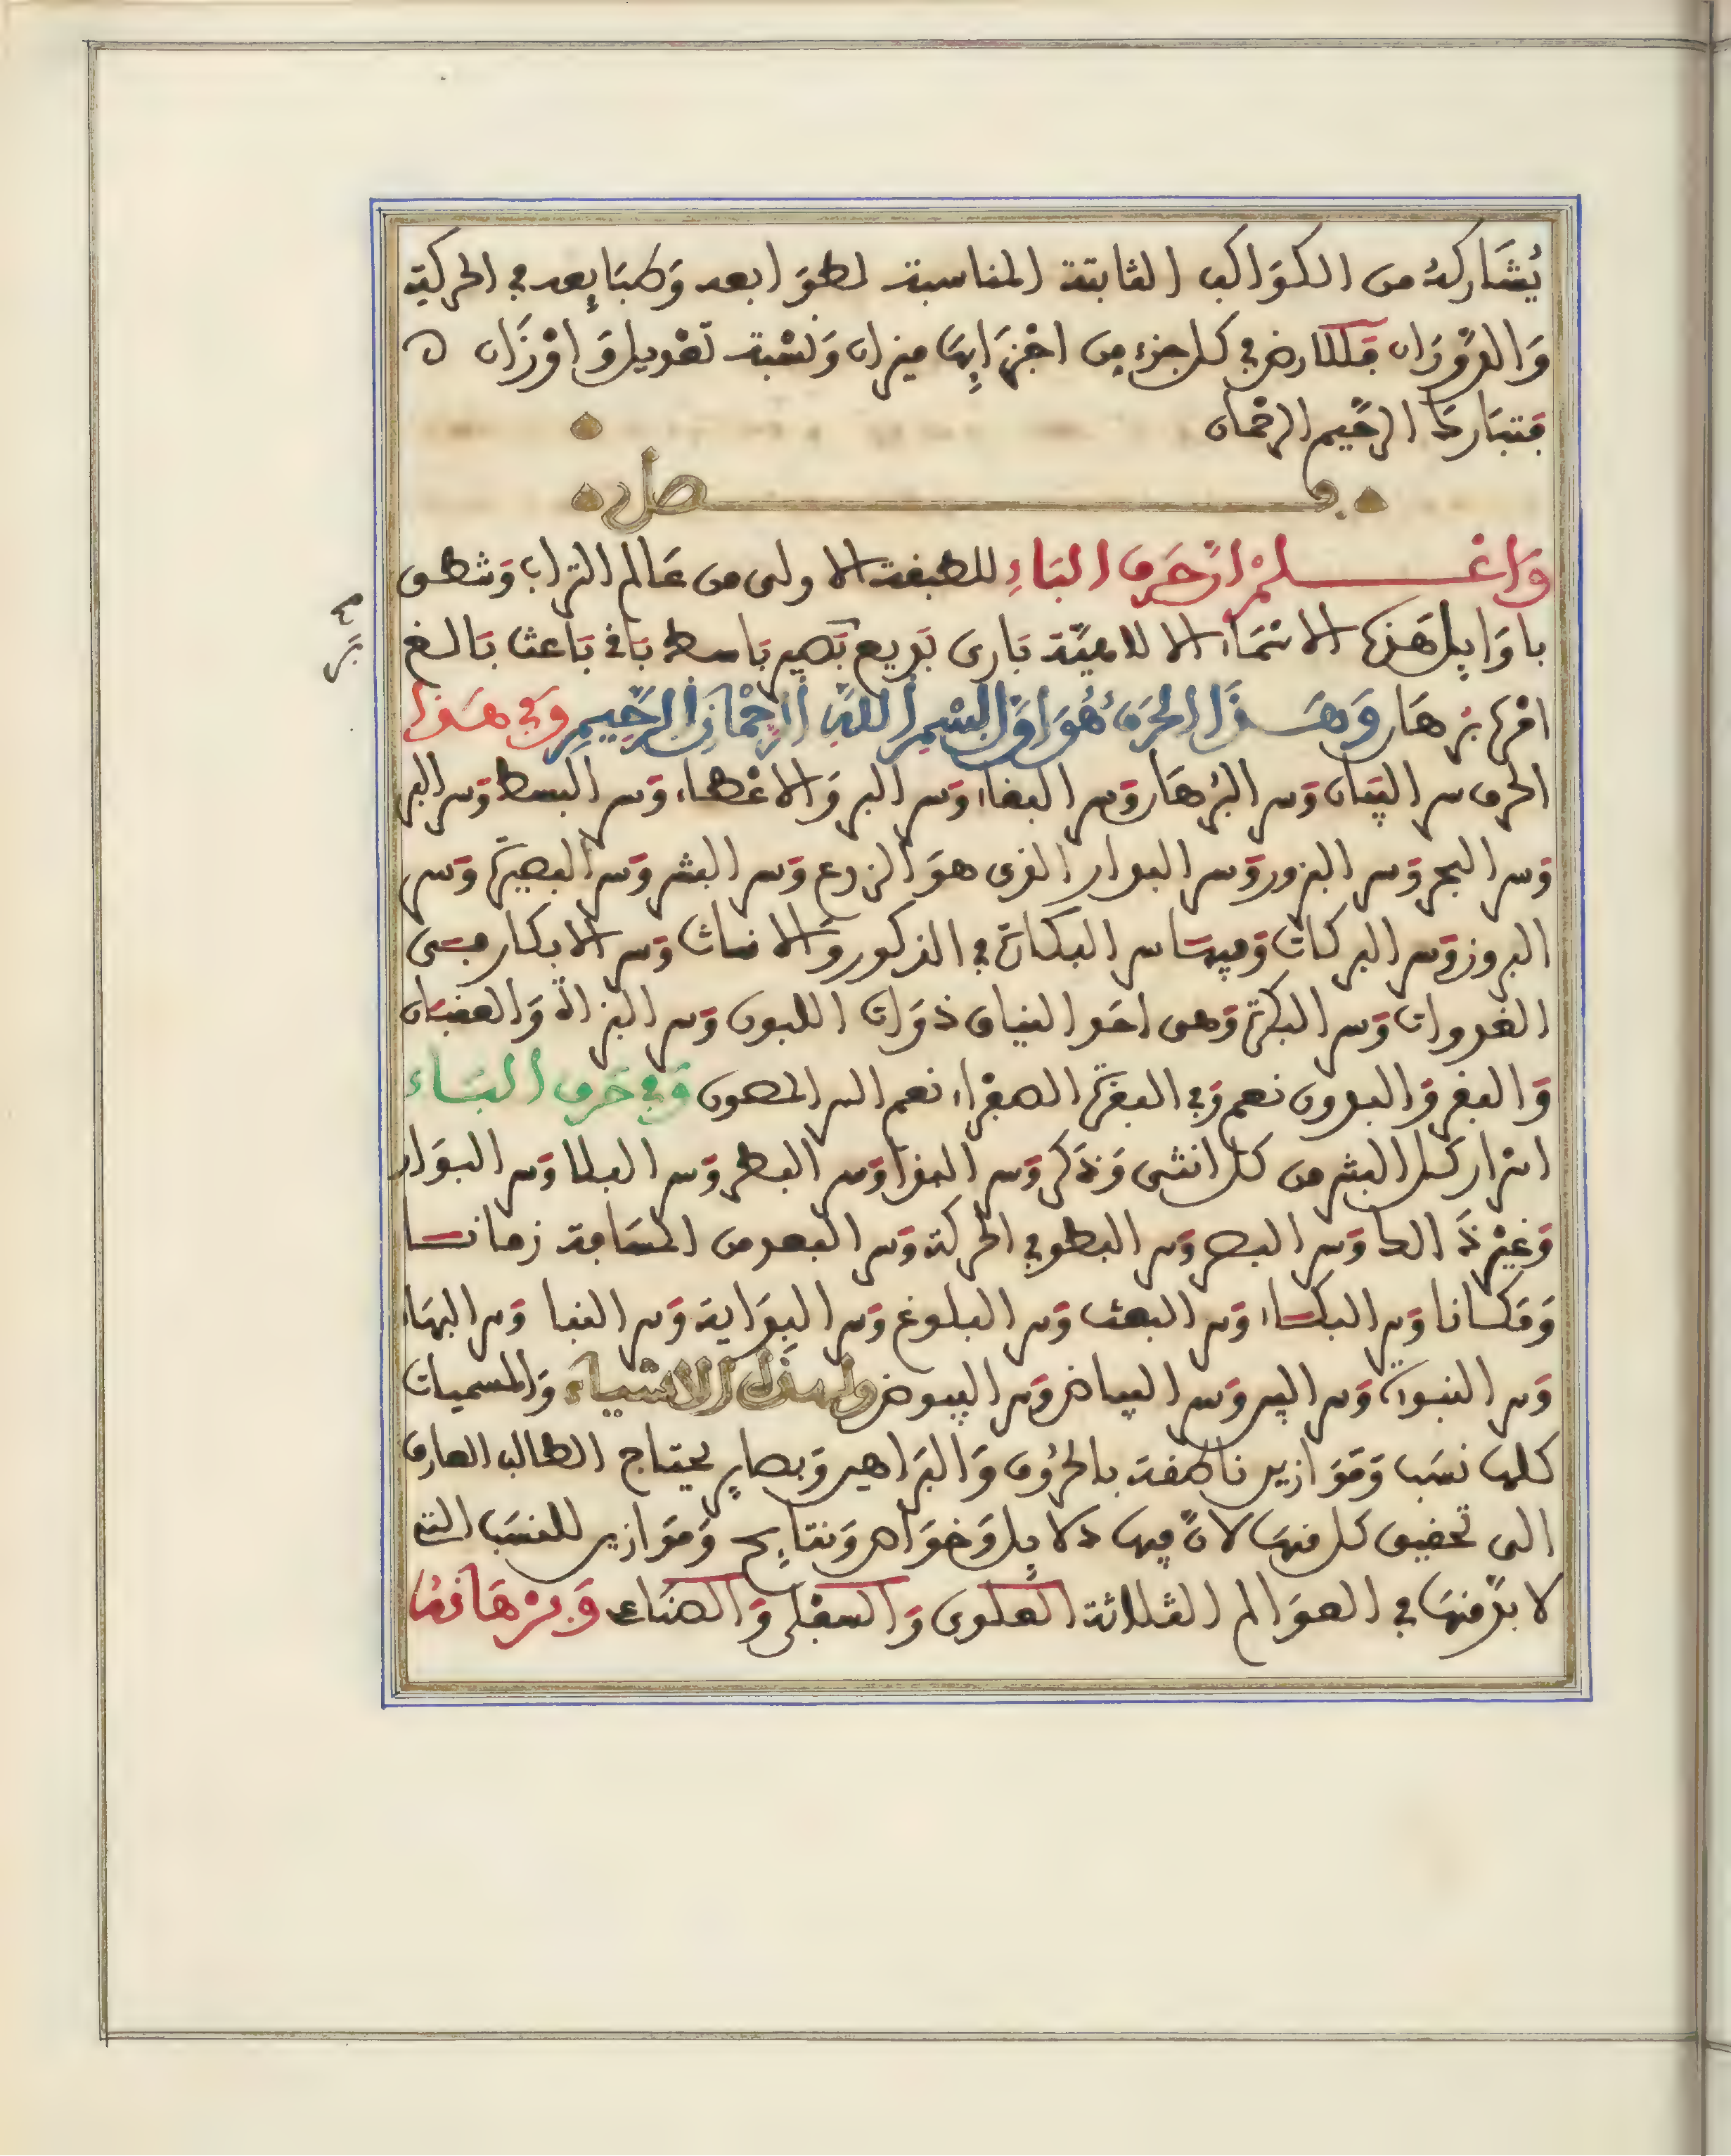 يُشَاركهُ من الكوَاكب الثابتة المناسبة لطوَابعه وَطبَايعه في الحركة
وَالدَّوَرَان فللارض في كل جزء من اجْزَايِهَا ميزان وَنسْبة تعْديل وَاوْزَان ه
فتبَارك الرحيم الرحمَان
فصل
وَاعْلمْ ان حَرف البَاءِ للطبيعة الاولى من عَالم التراب وَشطى
باوَايل هَذه الاسْمَاء الالاهيَّة بَارى بَديع بَصير بَاسط بَاقى بَاعث بَالغ
امْره بُرهَان وَهَذَا الحَرفُ هُوَ اوَّل بسْمِ اللَّهِ الرَّحْمَانِ الرَّحِيمِ وَفي هَذا
الحرف سر البيَان وَسر البُرهَان وَسر البقاء وَسر البر وَالاعْطاء وَسر البسط وَسر البر
وَسر البحر وَسر البزور وَسر البدار الذى هوَ الزرع وَسر البشر وَسر البصيرَة وَسر
البروز وَسر البركات وَفيهَا سر البكارَة في الذكور وَالاناث وَسر الابكار فى
الغدوات وَسر البكرة وَهى احَد النياق ذوَات اللبون وَسر البزاة وَالعقبَان
وَالبقر وَالبدون نعم وَفي البقرَة الصفرَاء نعم السر المصون وَفي حَرف البَاء
اسْرار كل البشر من كل انثى وَذكر وَسر البذا وَسر البطر وَسر البلا وَسر البوَار
وَغيْر ذَالك وَسر البصر وَسر البطو في الحركة وَسر البعد من المسَافة زمانا
وَمَكانا وَسر البكاء وَسر البعث وَسر البلوغ وَسر البِدَاية وَسر النبا وَسر البهَاء
وَسر النبوة وَسر البير وَسر البياض وَسر البيوض ولهذه الاشياء وَالمسميات
كلهَا نسَب وَمَوَازين ناطقة بالحرُوف وَالبَراهين وَبصاير يحتاج الطالب العارف
الى تحقيق كل منهَا لانَّ فيهَا دلايل وَخوَاص وَنتايج وَموَازين للنسَب التى
لا بدَّ منهَا في العوَالم الثلاثة العلوى وَالسفلى وَالصنَاعى وَبرْهَانهُا